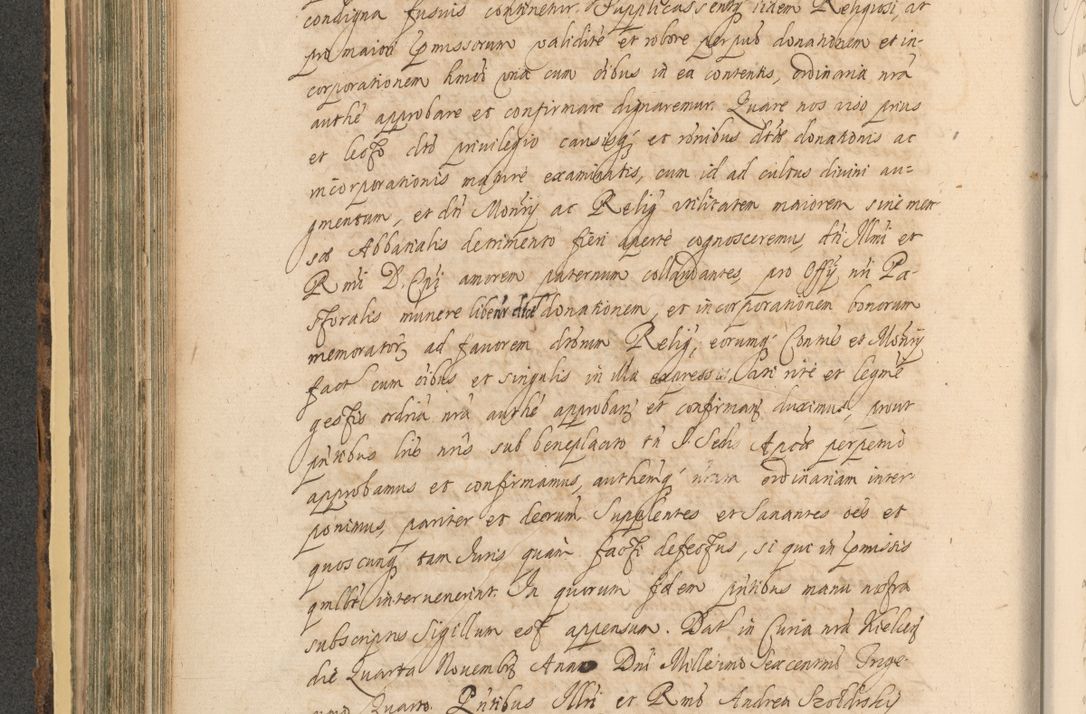 condigna fusius continetur. Supplicassentq iidem Religiosi, at
pro maiori pmissorum validite et robore perpuo donationem et in-
corporationem hmoi una cum oibus in ea contentis, ordinaria nra
authe approbare et confirmare dignaremur. Quare nos viso prius
et lecto dto privilegio causisq et ronibus dtae donationis ac
incorporationis mature examinatis, cum id ad cultus divini au=
gmentum, et dti Monrij ac Relig utilitatem maiorem sine men
sae Abbatialis detrimento fieri aperte cognosceremus, dti Illmi et
Rmi D. Epi amorem paternum collaudantes, pro Offij nri Pa-
storalis munere libenr dtae donationem, et incorporationem bonorum
memorator ad favorem dtorum Relig, eorumq Contus et Monrij
fact cum oibus et singulis in illa expressis, Pari rite et legme
gestis ordria nra authe approban et confirman duximus, prout
pntibus lris nris sub beneplacito tn S. Sedis Aplcae perpetuo
approbamus et confirmamus, authemq nram ordinariam inter-
ponimus, pariter et decrum. Supplentes et Sanantes oes et
quoscunq tam Juris quam facti defectus, si qui in pmissis
qmlbt intervenerint. In quorum fidem pntibus manu nostra
subscriptis Sigillum est appensum. Dat in Curia nra Kielcen
die Quarta Novembr Anno Dni Millesimo Sexcentmo Trige-
Quarto. Pntibus Illri et Rmo Andrea Szoldrski